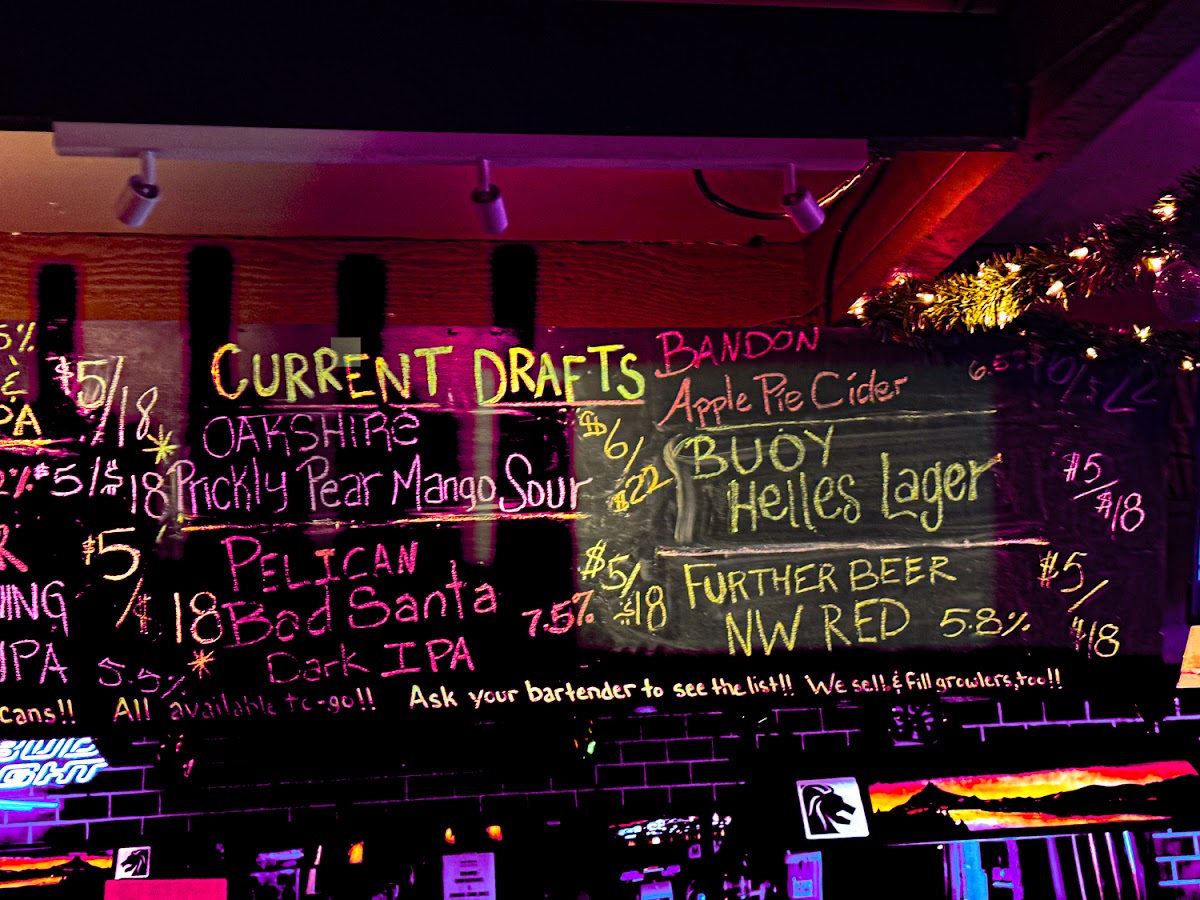 5%
&
PA
$5/
18
2% $5/$18
R
$5
/
18
ING
IPA
5.5%
CURRENT DRAFTS
OAKSHIRE
$6/
$22
Prickly Pear Mango Sour
PELICAN
Bad Santa
7.5%
$5/
$18
Dark IPA
BANDON
Apple Pie Cider
BUOY
Helles Lager
$5
/$18
FURTHER BEER
NW RED 5.8%
$5/
$18
cans!! All available to-go!! Ask your bartender to see the list!! We sell & fill growlers, too!!